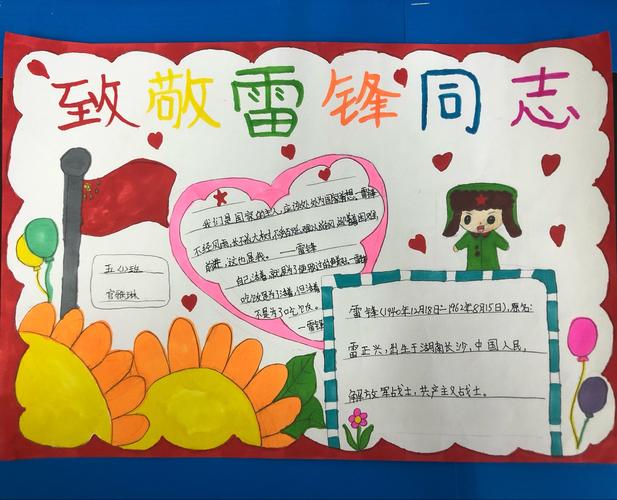 致敬雷锋同志
我们是国家的主人，应该处处为国家着想。—雷锋
不经风雨，长不成大树
前进，这也是我。—雷锋
自己活着，就是为了使
吃饭是为了活着，但活着
不是为了吃饭。
—雷锋
五
雷锋(1940年12月18日—1962年8月15日)，原名：
雷正兴，出生于湖南长沙，中国人民，
解放军战士，共产主义战士。